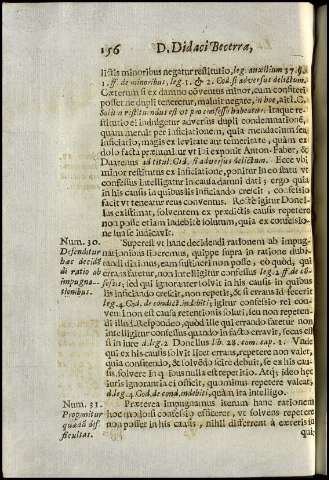 156 D. Didaci Becerra,
lictis minoribus negatur restitutio, leg. auxilium 37. §.
1. ff. de minoribus, leg. 1. & 2. Cod. si adversus delictum.
Cæterum si ex damno coventus minor, cum confiteri
posset ne dupli teneretur, maluit negate, in hoc, ait I. C.
restituendus est ut pro confesso habeatur. Itaque re-
stitutio ei indulgetur adversus dupli condemnationē,
quam meruit per inficiationem, quia mendacium seu
inficiatio, magis ex levitate aut temeritate, quàm ex
dolo facta præsumitur vt ibi exponit Anton. Faber, &
ad titul. Cod. si adversus delictum. Ecce vbi
minor restitutus ex inficiatione, ponitur in eo statu vt
confessus intelligatur in causa damni dati; ergo quia
in his causis in quibus lis inficiando crescit, confessio
facit vt teneatur reus conventus. Recte igitur Donel-
lus existimat, solventem ex prædictis causis repetere
non posse etiam indebitè solutum, quia ex confessio-
ne
Num. 30.
Defendatur
hac decidē
di ratio ab
impugna-
tionibus.
Superest vt hanc decidendi rationem ab impug-
nationibus
errans fatetur, non intelligitur confessus leg. 2. ff. de cō-
fessis, sed qui ignoranter solvit in his causis in quibus
lis inficiando crescit, non repetit, & si errans id fecerit
leg. 4. Cod. de condict. indebiti; igitur confessio rei con-
di illi respondeo, quòd ille qui errando fatetur non
intelligitur confessus quando in facto erravit, secus est
in iure d. leg. 2. Donellus lib. 28. com. cap. 1. Vnde
qui ex his causis solvit licet errans, repetere non valet,
quia consitendo, & solvēdo
sus, solvere in quibus nulla est repetitio. Atq; ideo hæc
iuris ignorantia ei officit, quominus repetere valeat,
d. leg. 4. Cod. de cond. indebiti, quàm ita intelligo.
Num. 31.
Proponitur
quædā dif-
ficultas.
Præterea impugnamus iterum hanc rationem
hoc modo si confessio efficeret, vt solvens repetere
non posset in his causis, nihil differrent à cæteris in
qui-